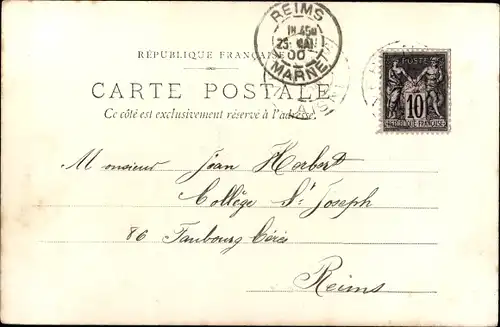 REIMS
23 MAI
00
MARNE
RÉPUBLIQUE FRANÇAISE
CARTE POSTALE
Ce côté est exclusivement réservé à l'adresse.
POSTE
10
RÉPUBLIQUE FRANÇAISE
Monsieur Jean Herbert
Collège St Joseph
86 Faubourg Cérès
Reims